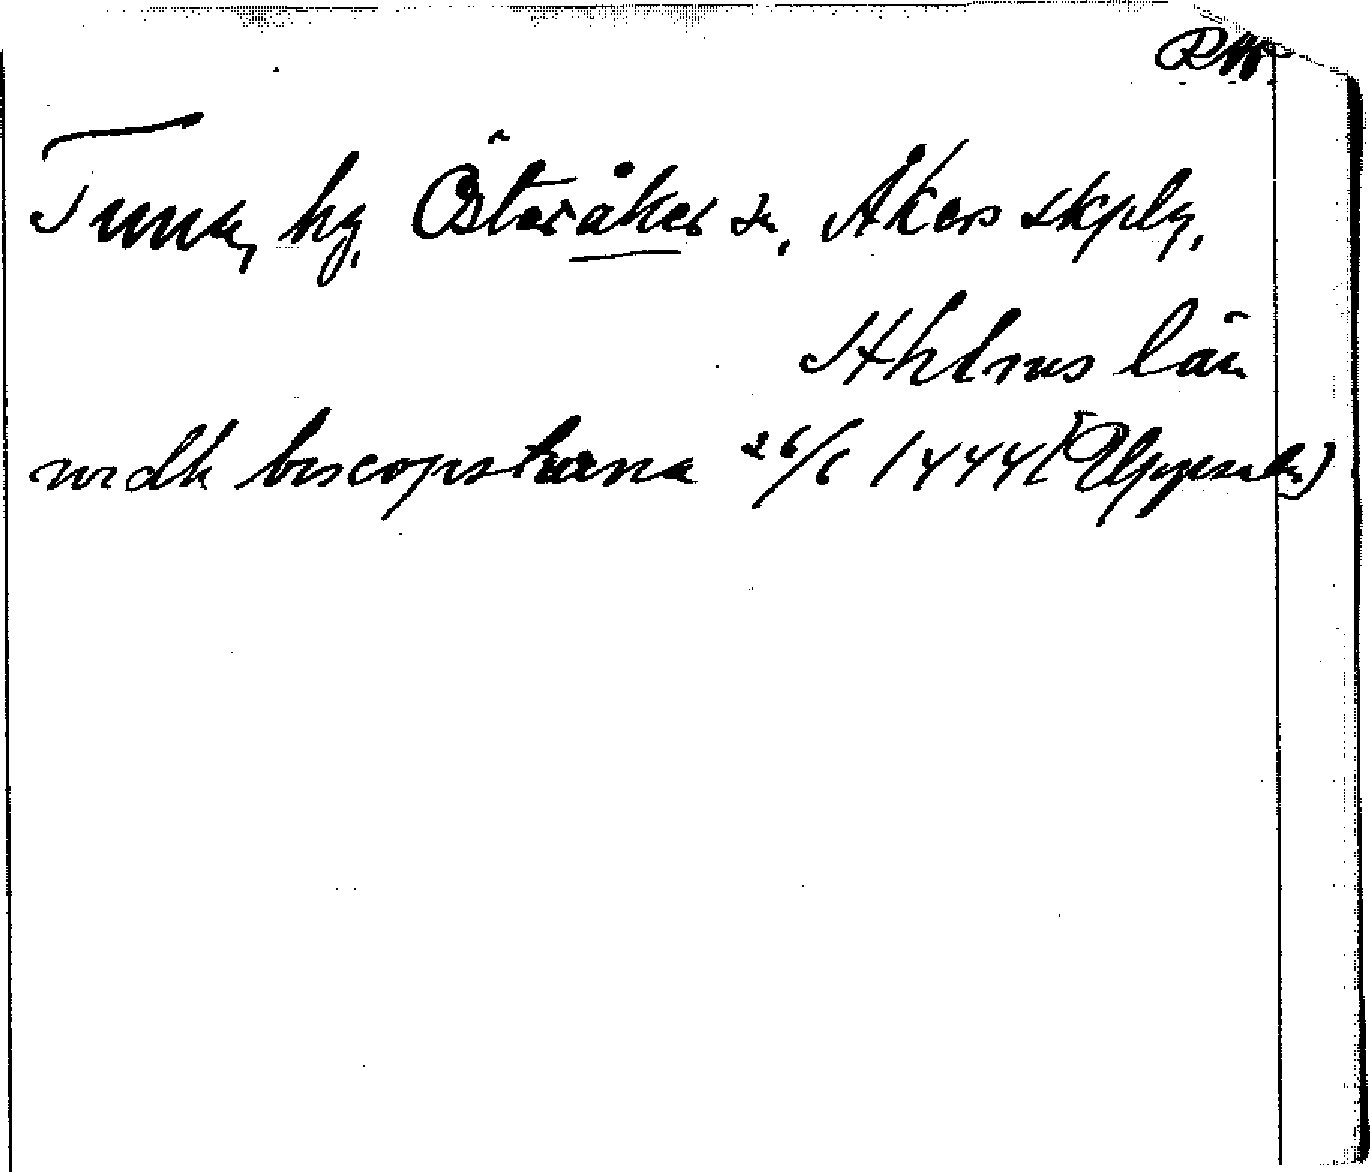 RW.
Tuna, hg, Österåkers sn, Åkers skplg,
Sthlms län
widh biscopstuna 26/6 1444 (Uppsala)